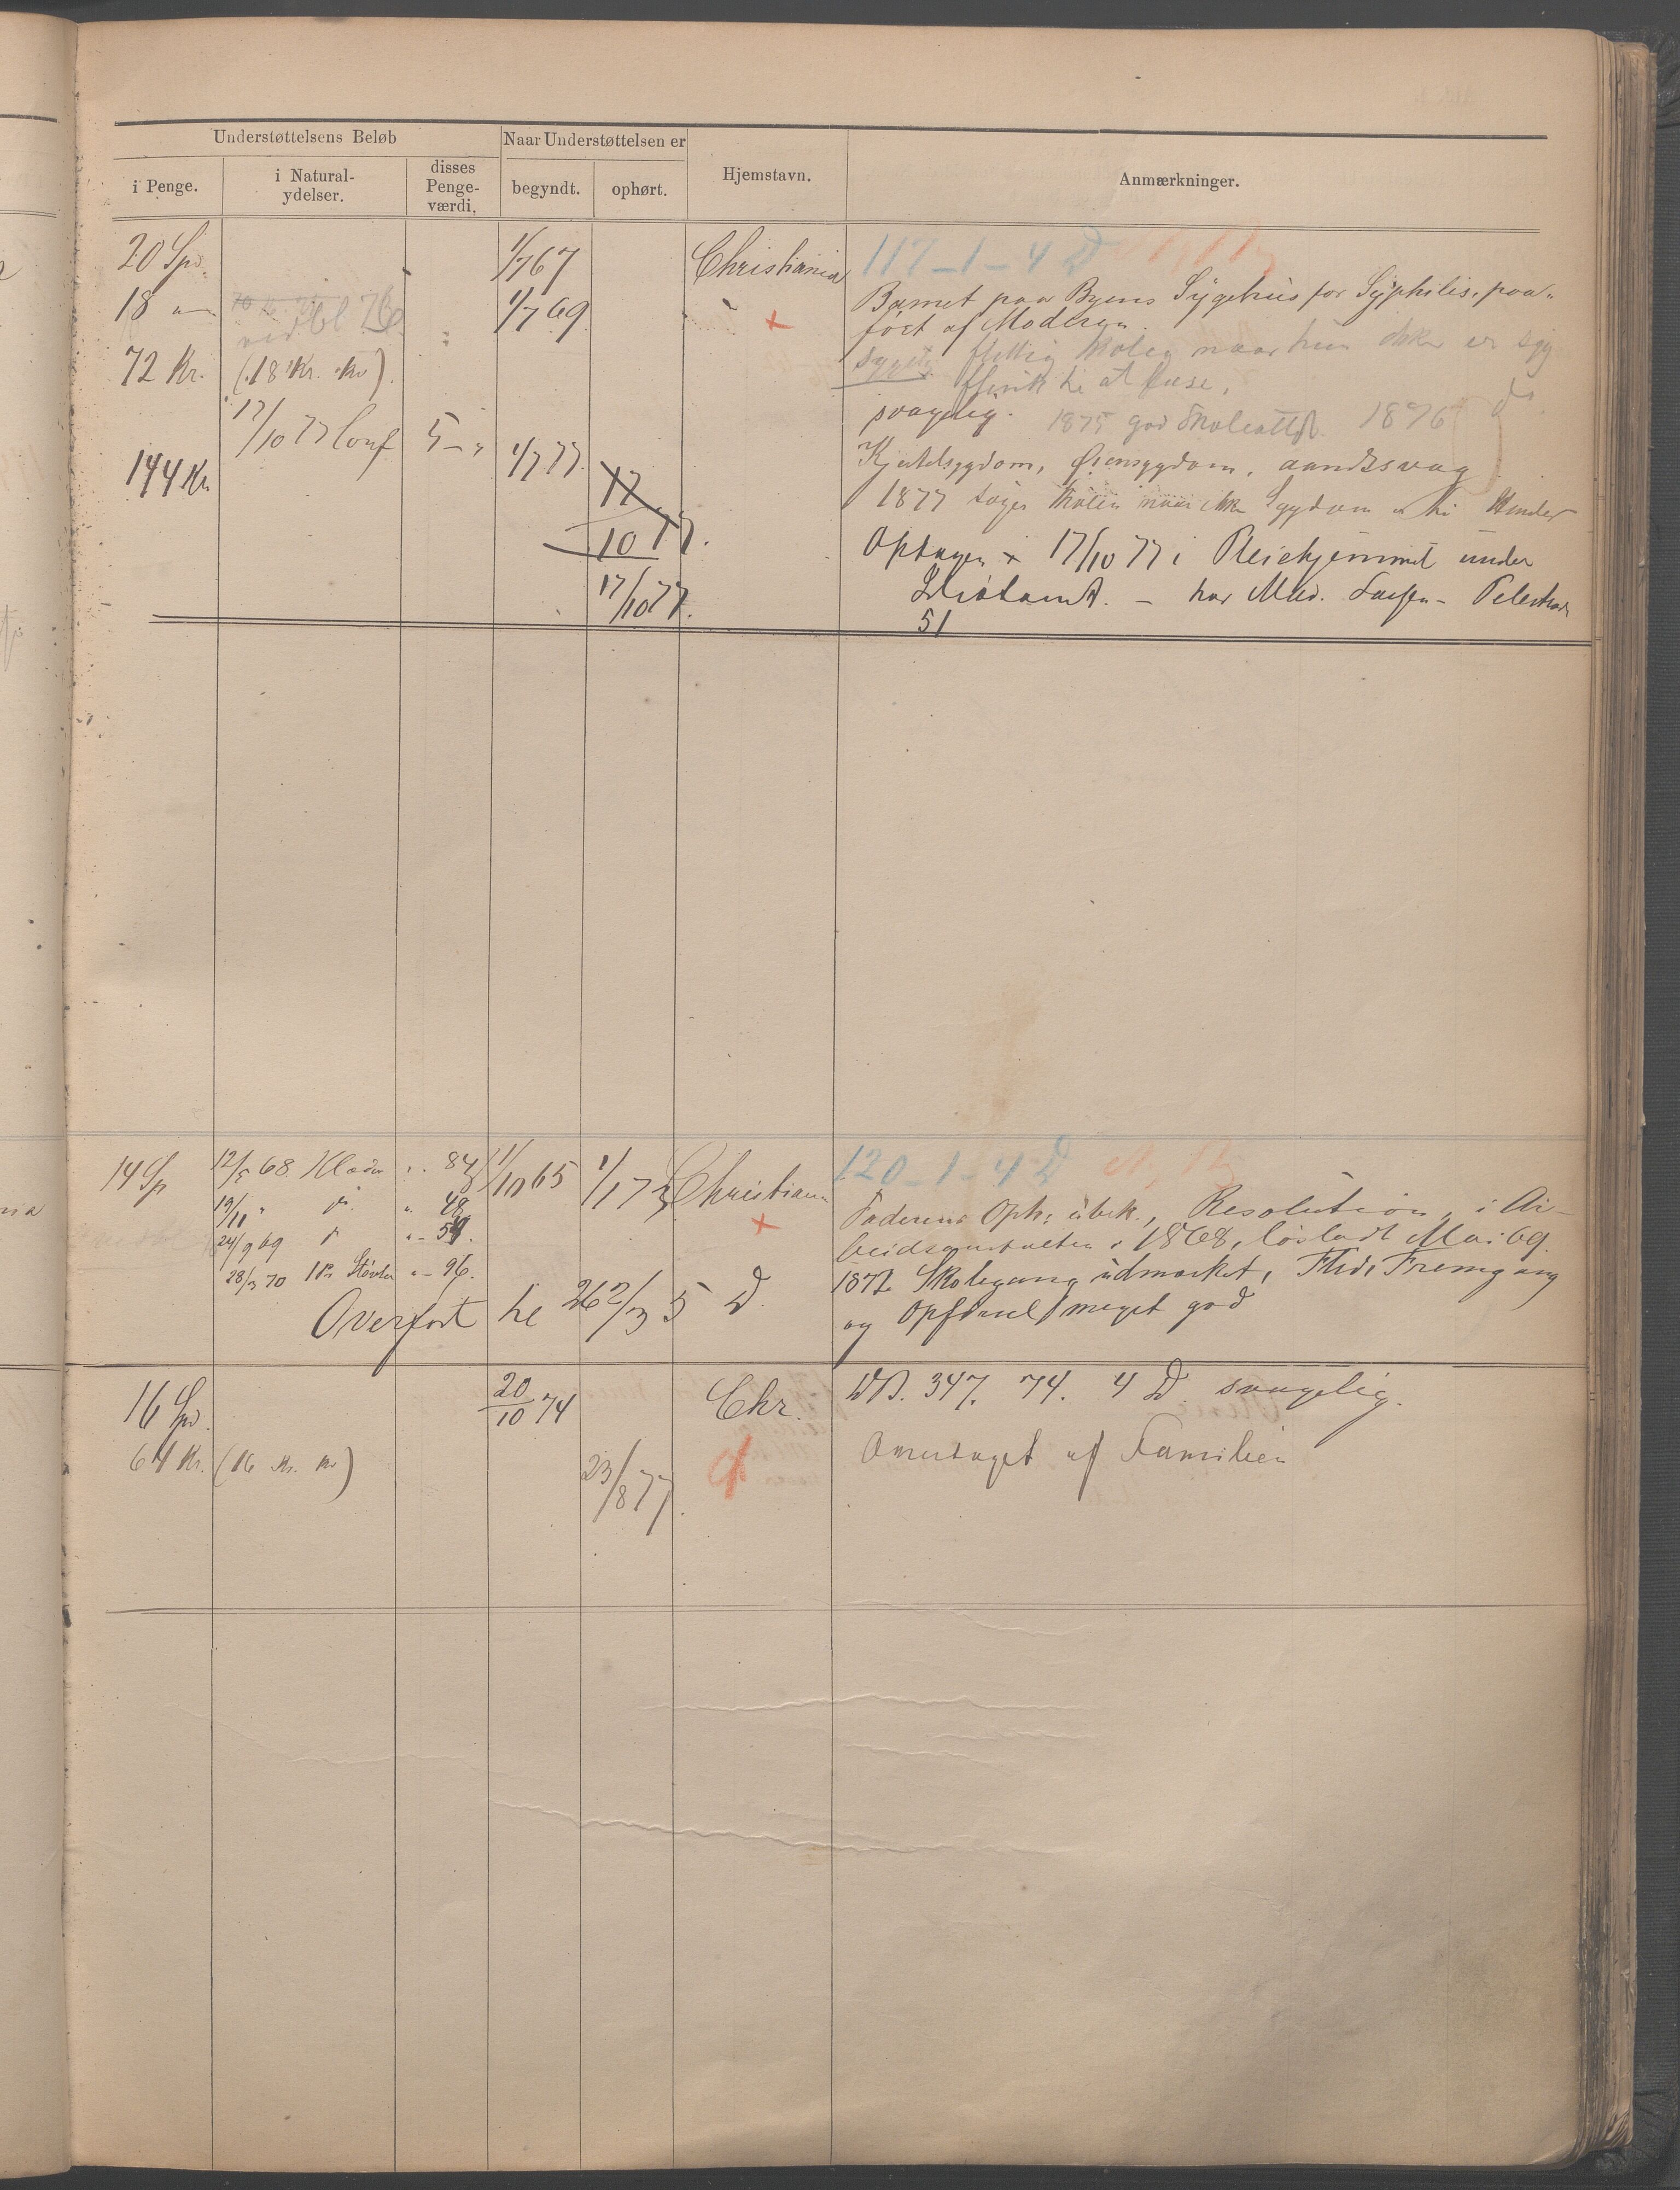 Understøttelsens Beløb
Naar Understøttelsen er
i Penge.
i Natural-
ydelser.
disses
Penge-
værdi.
begyndt.
ophørt.
Hjemstavn.
Anmærkninger.
20 Spd.
1/7 67
Christiania
117 - 1 - 4 D
18 "
1/7 69
"
Barnet paa Byens Sygehus for Syphilis, paa-
ført af Moderen.
72 Kr. (18 Kr. Kv).
flittig Skolen naar hun ikke er syg
svagelig. 1875 god Skoleattest. 1876 do
17/10 77 Conf 5 - "
1/7 77
Kjertelsygdom, Øiensygdom, aandssvag
144 Kr.
17/10 77.
1877 søger Skolen naar ikke Sygdom
Optagen 17/10 77 i Pleiehjemmet under
17/10 77.
51
14 Sp
12/5 68 Klæder " 84
1/10 65
1/1 73
Christiania
120 - 1 - 4 D
19/11 " do " 48
Faderens Oph: ubek., Resolution i Ar-
24/9 69 do " 54.
beidsanstalten 1868, løsladt Mai 69.
28/3 70 1 Pr Støvler " 96.
1872 Skolegang udmærket, Flid, Fremgang
Overført til 262/3 5 D.
og Opførsel meget god
16 Spd.
20/10 74
Chr.
347. 74. 4 D. svagelig.
64 Kr. (16 Kr. Kv)
23/8 77.
af Familien